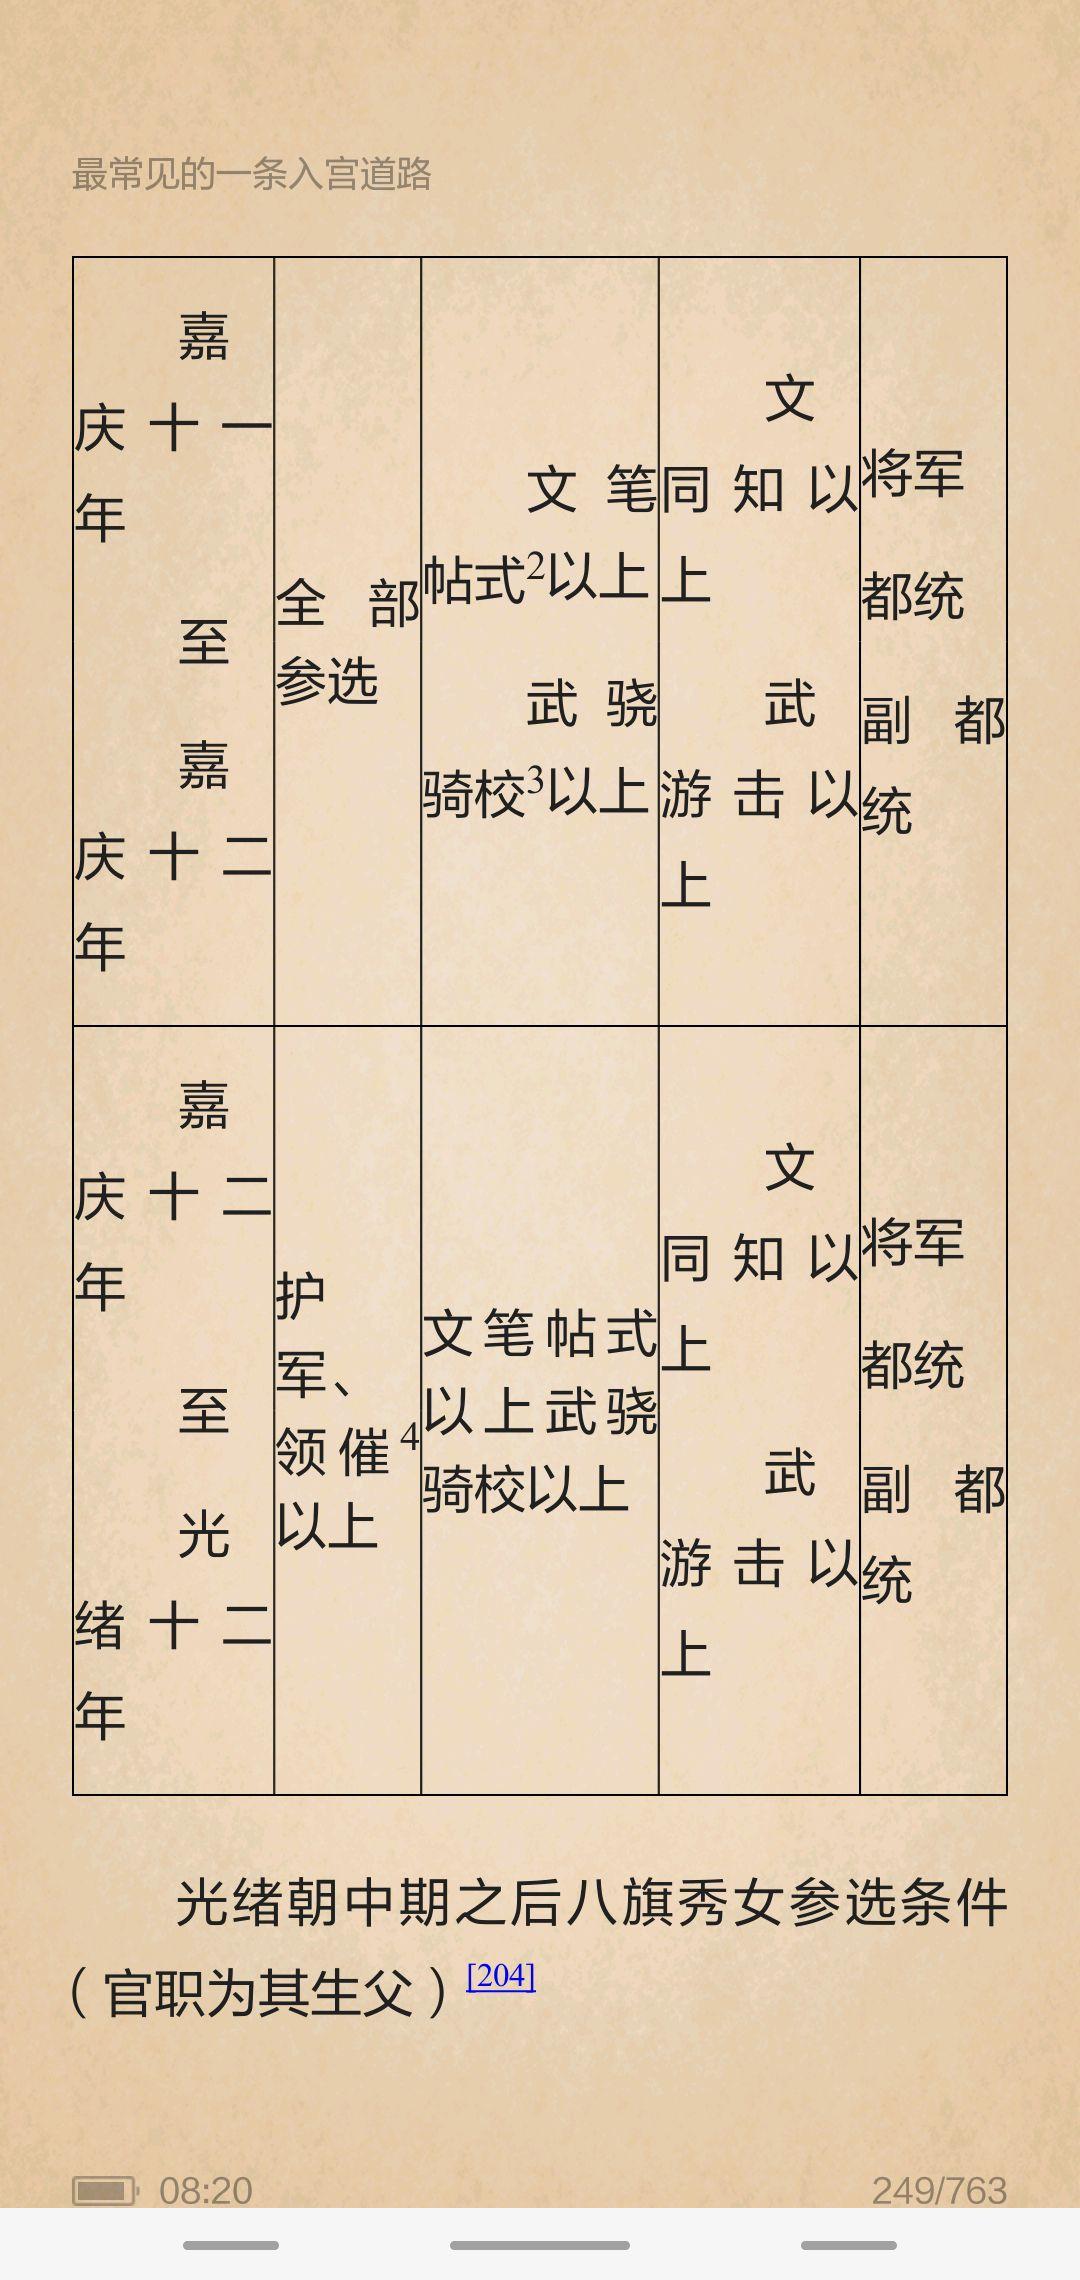 最常见的一条入宫道路
嘉
庆十一
年
至
嘉
庆十二
年
全部
参选
文笔
帖式2以上
武骁
骑校3以上
文
同知以
上
武
游击以
上
将军
都统
副都
统
嘉
庆十二
年
至
光
绪十二
年
护
军、
领催4
以上
文笔帖式
以上武骁
骑校以上
文
同知以
上
武
游击以
上
将军
都统
副都
统
光绪朝中期之后八旗秀女参选条件
（官职为其生父）[204]
08:20
249/763